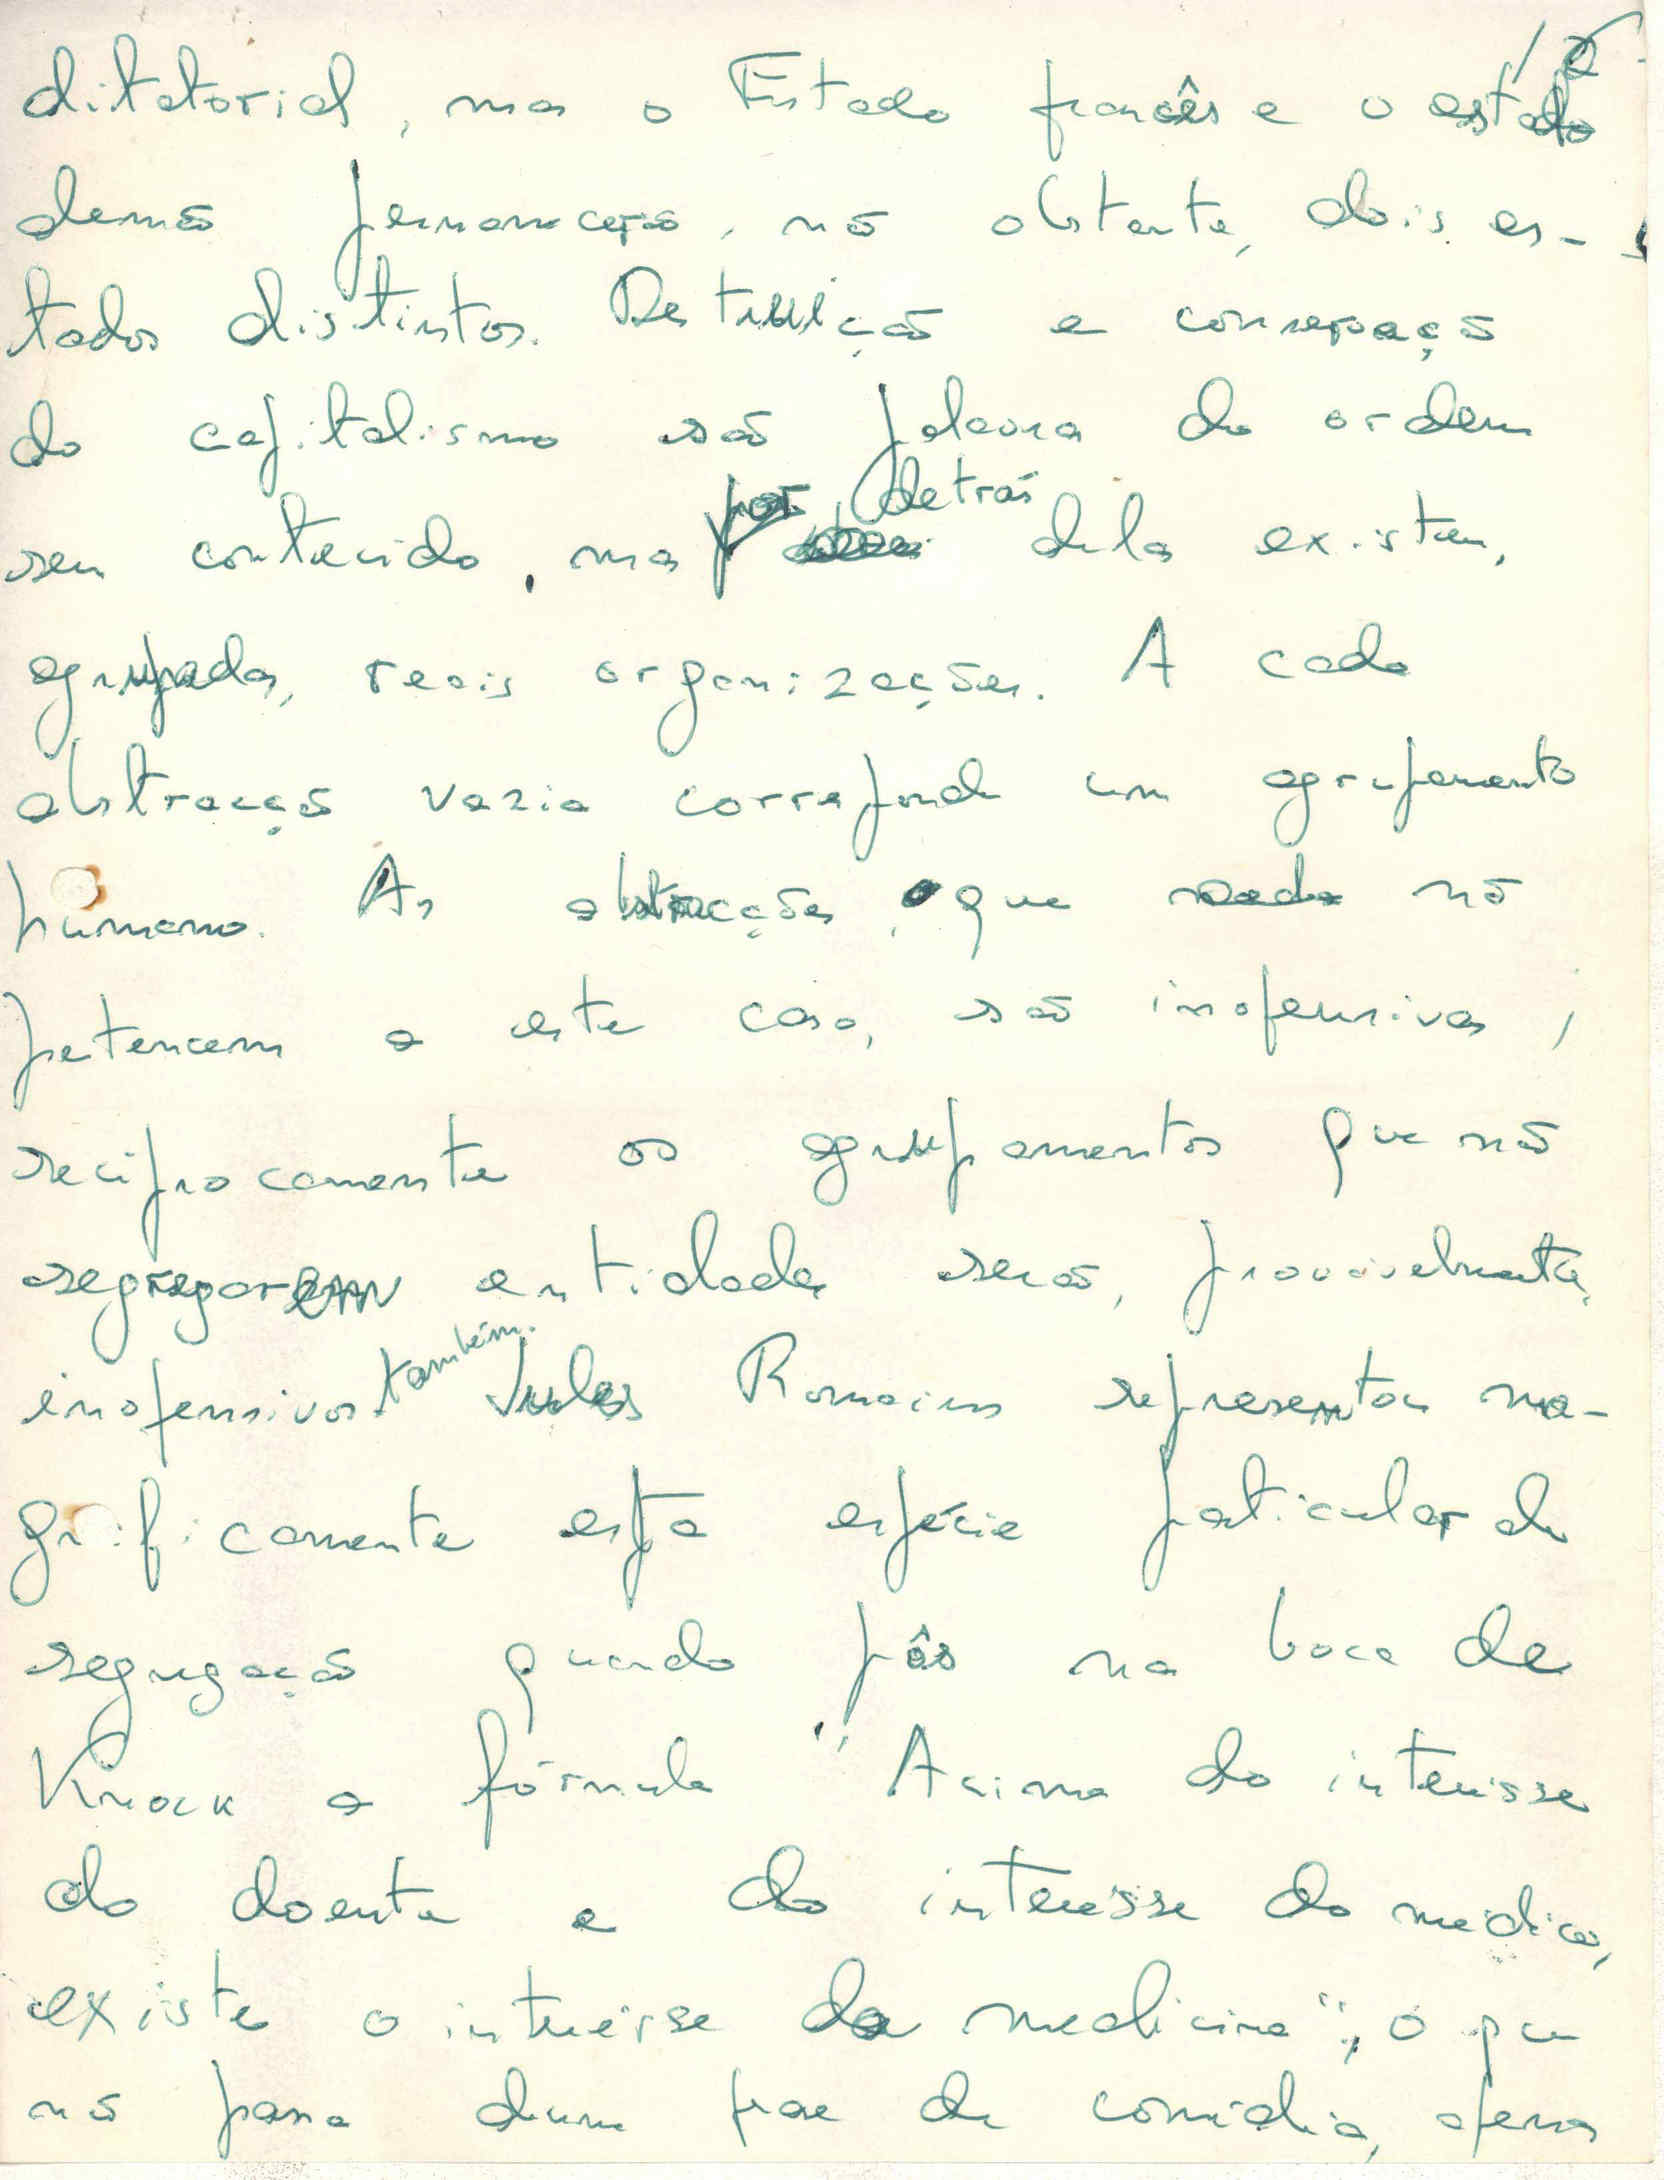 ditatorial, mas o Estado francês e o estado
alemão permanecerão, não obstante, dois es-
tados distintos. Destruição e conservação
do capitalismo são palavras de ordem
sem conteúdo, mas por detrás delas existem,
agrupadas, reais organizações. A cada
abstracção vazia corresponde um agrupamento
humano. As abstracções, que não
pertencem a este caso, são inofensivas;
reciprocamente os agrupamentos que não
segregarem entidades serão, provàvelmente,
inofensivos também. Jules Romains representou ma-
gnificamente esta espécie particular de
segregação quando pôs na boca de
Knock a fórmula "Acima do interesse
do doente e do interesse do médico,
existe o interesse da medicina", o que
não passa duma frase de comédia, apenas